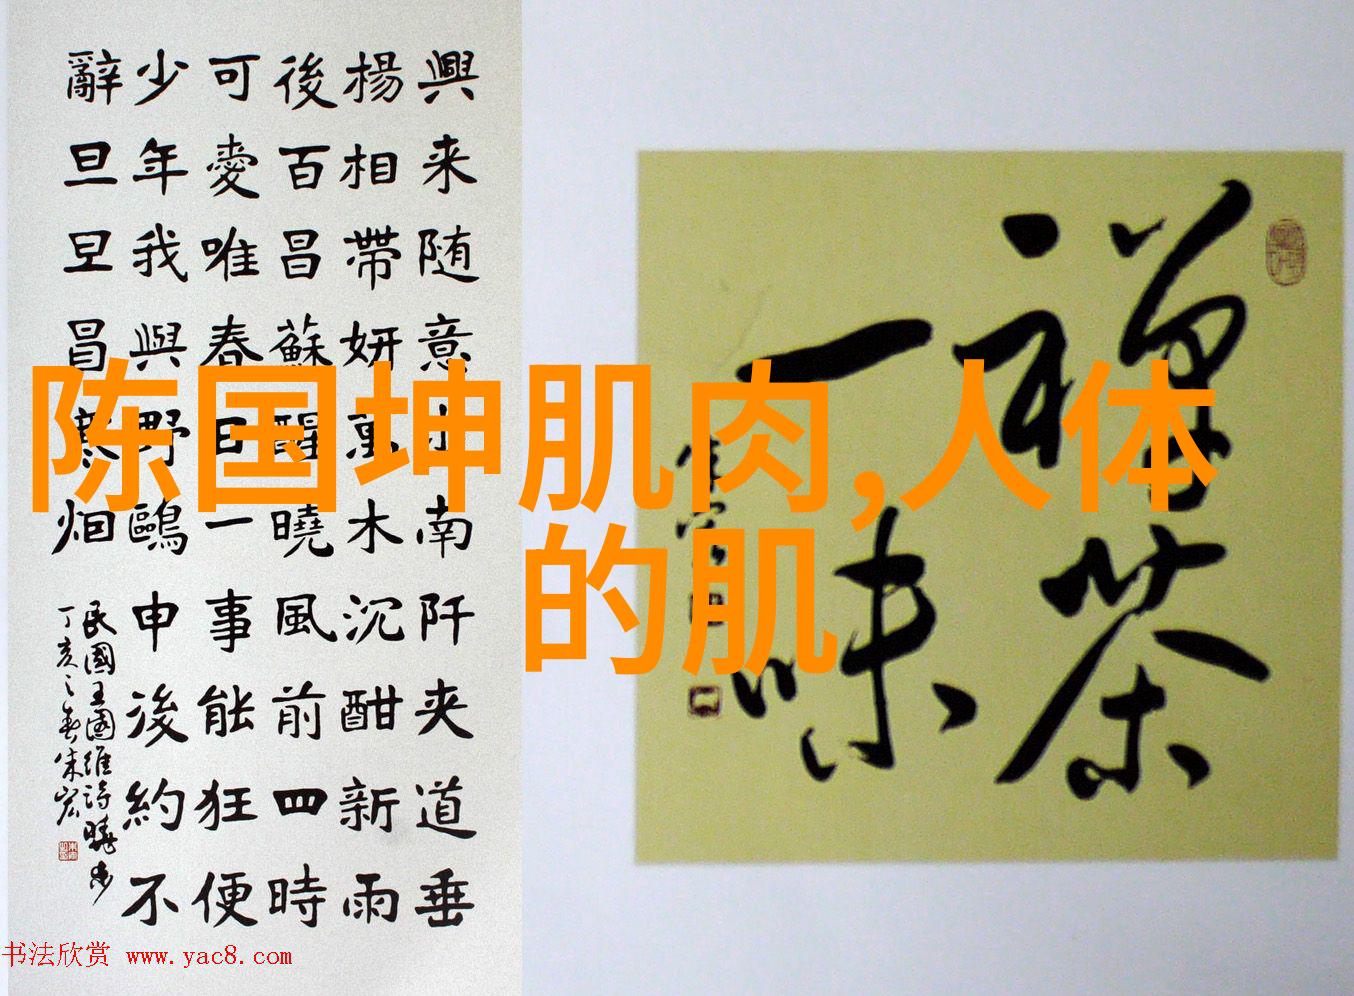 興来随意步南阡夹道垂
楊相帶妍萬木沉酣新雨
後百昌蘇醒曉風前四時
可愛唯春日一事能狂便
少年我與野鷗申後約不
辭旦旦冒寒烟
民國王國維詩曉步
丁亥之春朱宏
禪茶
一味
陈国坤肌肉,人体
的肌
书法欣赏 www.yac8.com